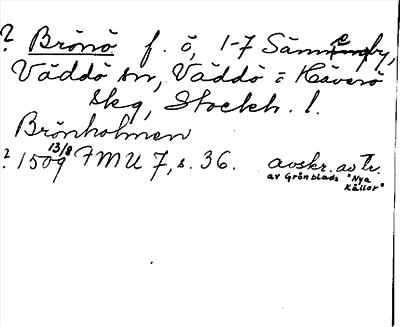 ? Brönö f. ö, 1-7 Sämmeby,
Väddö sn, Väddö ≈ Häverö
skg, Stockh. l.
Brönholmen
? 1509 13/8 FMU 7, s. 36. avskr. av Tr.
av Grönblads "Nya
Källor"